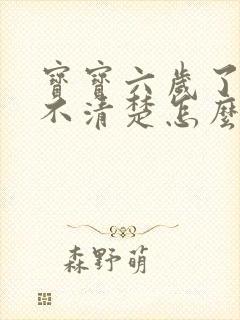 寶寶六歲了
不清楚怎麼
森野萌